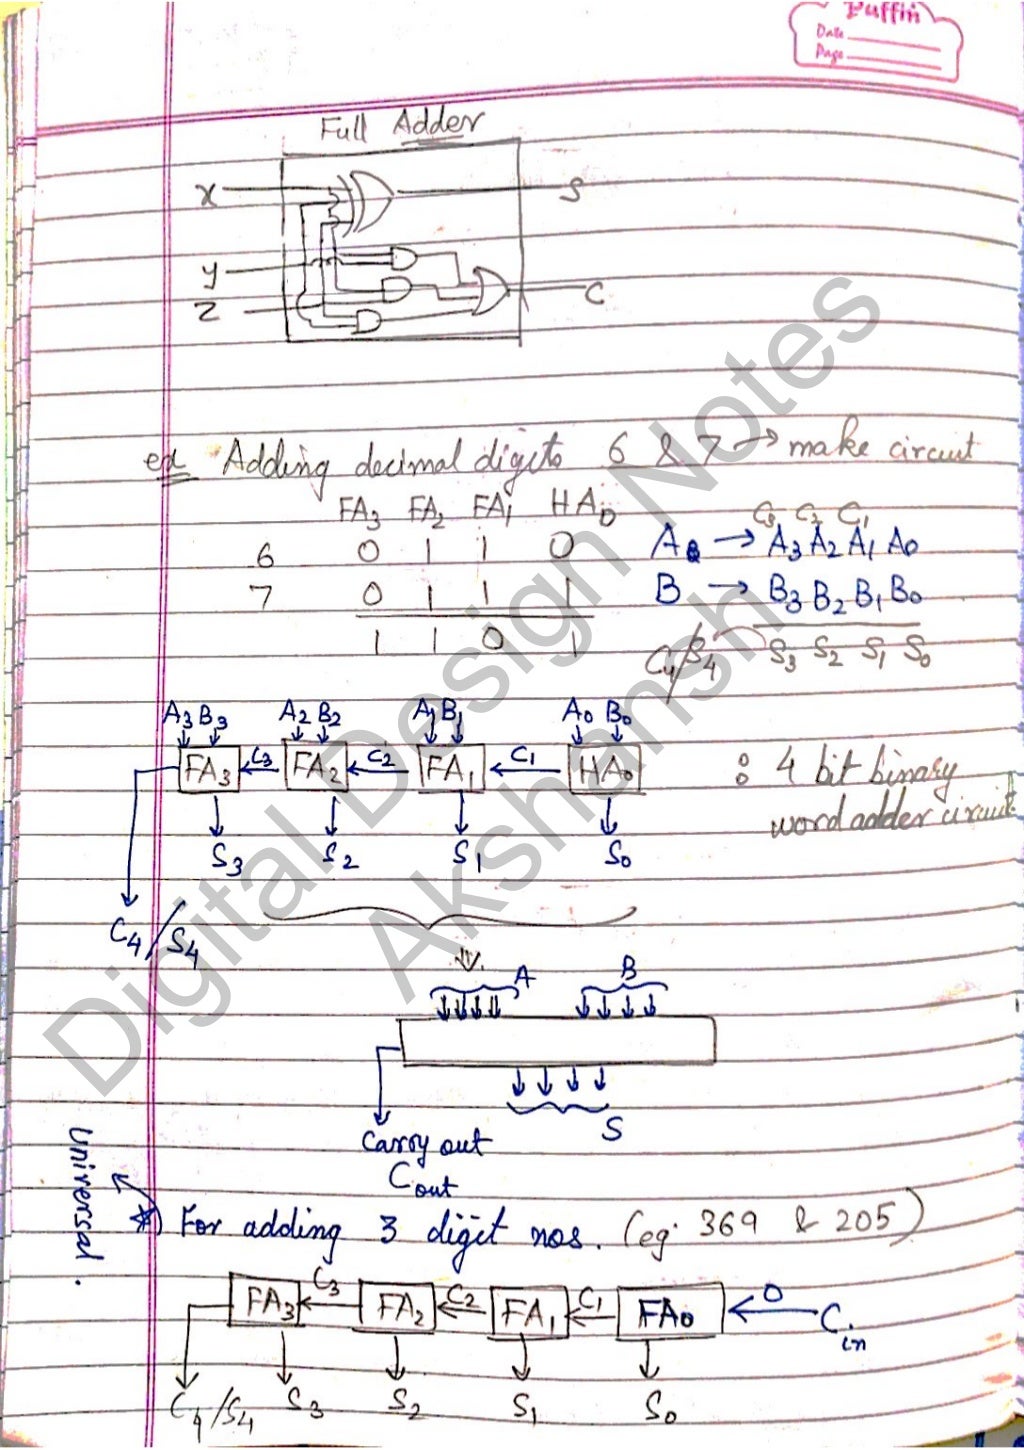 Puffin
Date
Page
Full Adder
X
S
Y
Z
C
ex Adding decimal digits 6 & 7 → make circuit
FA3 FA2 FA1 HA0
C3 C2 C1
6 0 1 1 0
A → A3 A2 A1 A0
7 0 1 1 1
B → B3 B2 B1 B0
1 1 0 1
C4/S4 S3 S2 S1 S0
A3 B3 A2 B2 A1 B1 A0 B0
FA3 C3 FA2 C2 FA1 C1 HA0
: 4 bit binary
word adder circuit.
S3 S2 S1 S0
C4/S4
A B
S
Carry out
Cout
Universal.
*) For adding 3 digit nos. (eg. 369 & 205)
FA3 C3 FA2 C2 FA1 C1 FA0 0 Cin
C4/S4 S3 S2 S1 S0
Digital Design Notes
Akshansh